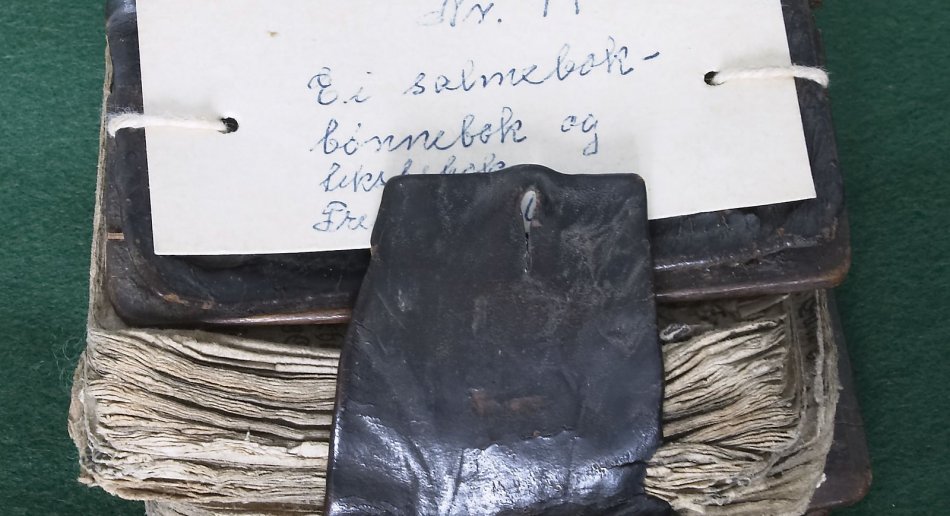 Nr.
Ei salmebok-
bønnebok og
Fre